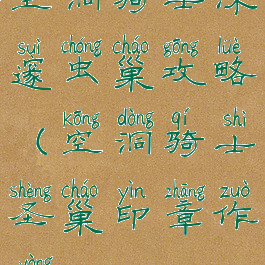 空洞骑士深
suì chóng cháo gōng luè
邃虫巢攻略
kōng dòng qí shì
（空洞骑士
shèng cháo yìn zhāng zuò
圣巢印章作
yòng